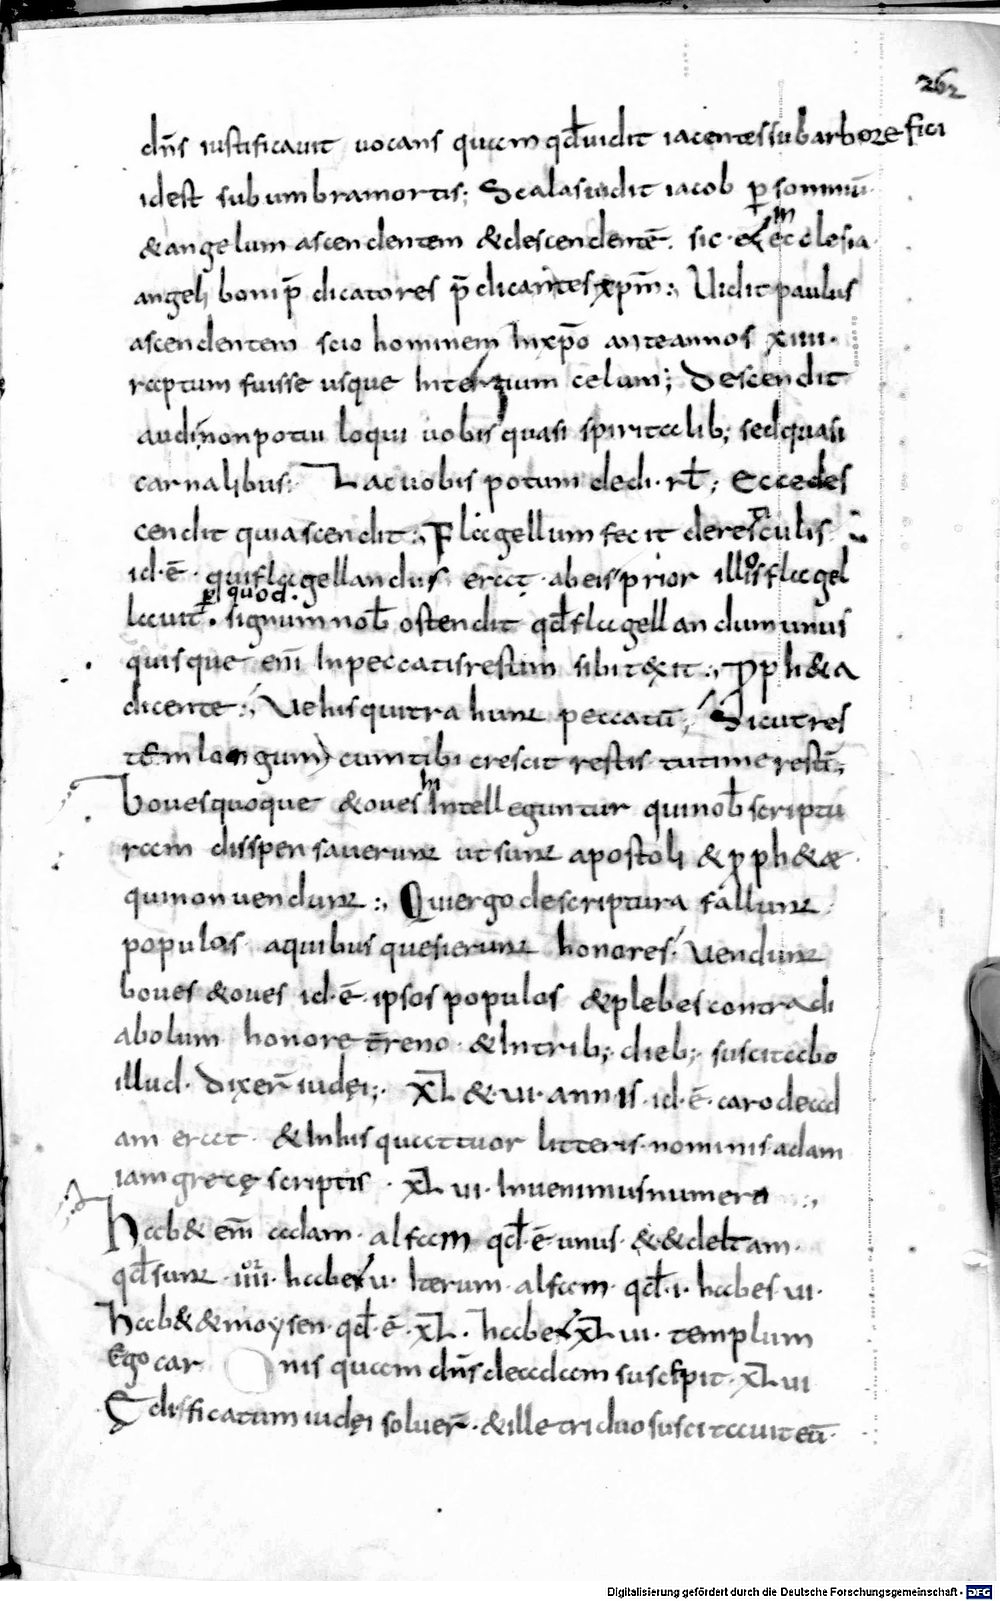 262
dñs iustificauit uocans quem qd̄ uidit iacentes sub arbore fici
idest sub umbra mortis; Scalas uidit iacob p̱ somniū
& angelum ascendentem & descendentē. sic ecclesia
angeli boni p̄dicatores p̄dicantes xpm̄:, Uidit paulus
ascendentem scio hominem In xp̄o ante annos xiiii.
raptum fuisse usque In tertium celum; Descendit
audi, non potui loqui uobis quasi spiritalib; sed quasi
carnalibus: Lac uobis potum dedi. rł; Ecce des
cendit qui ascendit:, Flagellum fecit de resticulis
id.ē. qui flagellandus erat. ab eis prior illos flagel
p̱ quod.
lauit. signum nob̄ ostendit qd̄ flagellandum unus
quisque em̄ In peccatis restem sibi t&xit:, Pph&a
dicente:, Ve his qui trahunt peccatū; Sicut res
tem longum) cum tibi crescit restis tu time restē;
boues quoque & oues Intelleguntur qui nob̄ scriptu
ram disspensauerunt ut sunt apostoli & pph&æ
qui non uendunt:, Qui ergo de scriptura fallunt
populos a quibus quesierunt honores. Vendunt
boues & oues id.ē. ipsos populos & plebes contra di
abolum honore t̄reno. & In trib; dieb; suscitabo
illud. Dixer̄ iudęi; XL & ui. annis. id.ē. caro de ad
am erat. & In his quattuor litteris nominis adam
iam grecę scriptis. XL ui. Inuenimus numero:,
hab& em̄ adam. alfam qd̄.ē. unus. & & deltam.
qd̄ sunt. iiii. habes u. Iterum. alfam. qd̄. i. habes ui.
hab& & moysen. qd̄.ē. XL. habes XL ui. templum
Ego car nis quam dñs de adam suscepit. XL ui
Edifficatum iudęi soluer̄. & ille triduo suscitauit eū.
Digitalisierung gefördert durch die Deutsche Forschungsgemeinschaft - DFG